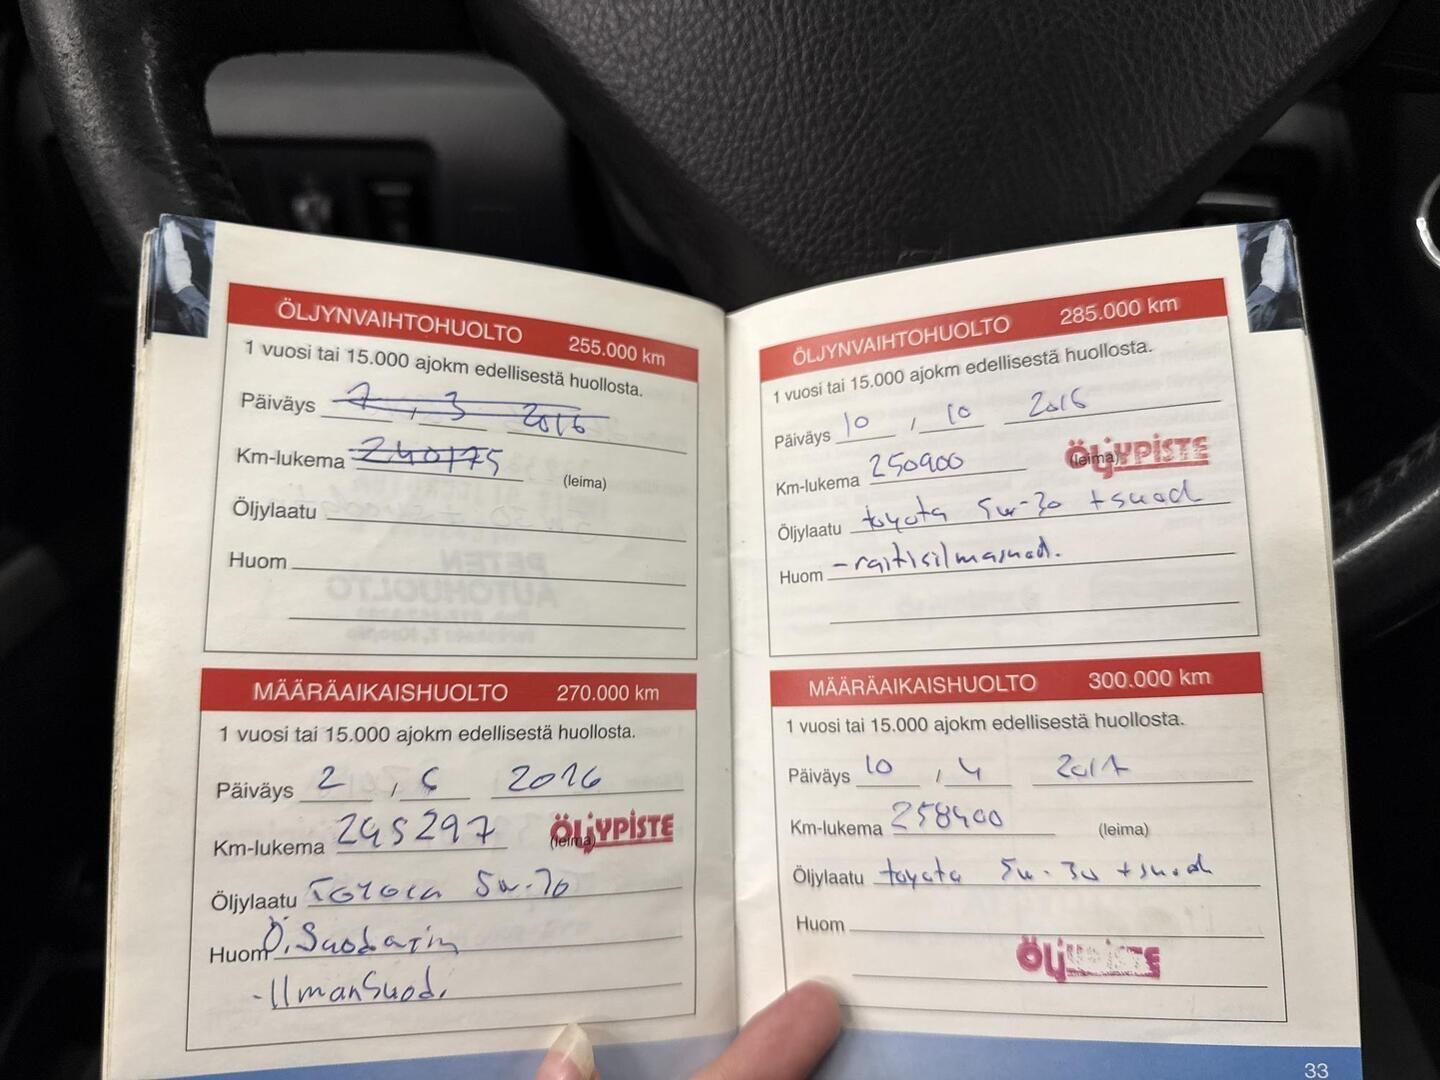 ÖLJYNVAIHTOHUOLTO 255.000 km
1 vuosi tai 15.000 ajokm edellisestä huollosta.
Päiväys 7 , 3 2016
Km-lukema 240175
(leima)
Öljylaatu
Huom
PETEN
AUTOHUOLTO
MÄÄRÄAIKAISHUOLTO 270.000 km
1 vuosi tai 15.000 ajokm edellisestä huollosta.
Päiväys 2 , 6 2016
Km-lukema 245297 (leima) ÖLJYPISTE
Öljylaatu Toyota 5w-30
Huom Ö.Suodatin
-IlmanSuod.
ÖLJYNVAIHTOHUOLTO 285.000 km
1 vuosi tai 15.000 ajokm edellisestä huollosta.
Päiväys 10 , 10 2016
Km-lukema 250900 (leima) ÖLJYPISTE
Öljylaatu toyota 5w-30 +suod
Huom -raitisilmasuod.
MÄÄRÄAIKAISHUOLTO 300.000 km
1 vuosi tai 15.000 ajokm edellisestä huollosta.
Päiväys 10 , 4 2017
Km-lukema 258400 (leima)
Öljylaatu toyota 5w-30 +suod
Huom
ÖLJYPISTE
33